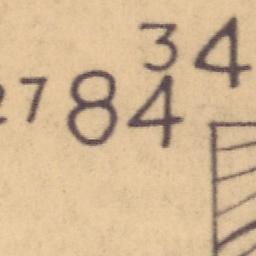 34
2784